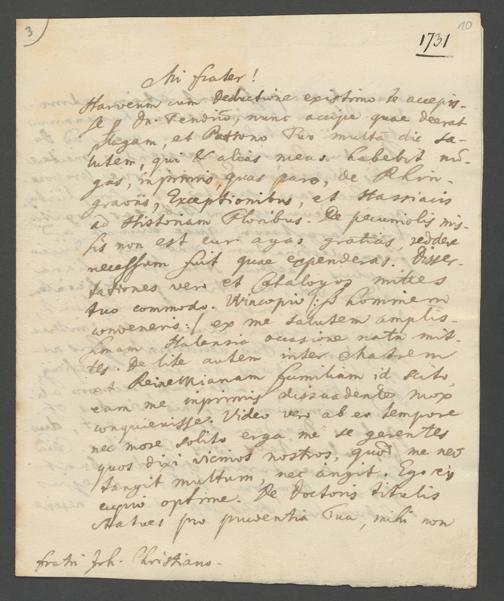 3
10
1731
Mi frater!
Harveum cum Deductione existimo te accepis-
se a Dn. Fendrio, nunc accipe quae deerat
plagam, et Patrono Tuo multa dic sa-
lutem, qui & alias meas habebit nu-
gas, inprimis, quas paro, de Rhin-
graviis, Exceptionibus, et Hassiacis
ad Historiam Floribus. De pecuniolis mis-
sis non est cur agas gratias, reddere
necessum fuit quae expenderas. Disser-
tationes vero et Catalogos mittes
tuo commodo. Wincopio /: si hominem
conveneris :/ ex me salutem amplis-
simam. Halensia occasione nata mit-
tes. De lite autem inter matrem
et familiam id scito,
eam me inprimis dissuadente mox
conquievisse. Video vero ab eo tempore
nec more solito erga me se gerentes
quos dixi vicinos nostros, quod me nec
tangit multum, nec angit. Ego iis
cupio optime. De Doctoris titulis
statues pro prudentia Tua, mihi non
fratri Joh. Christiano.